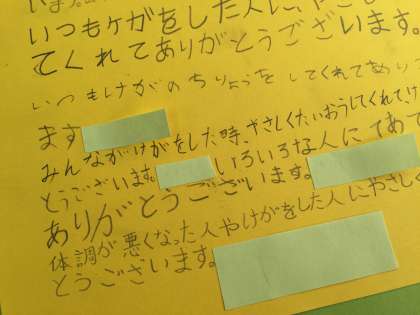 います。
いつもケガをした人に、やさし
てくれてありがとうございます。
いつもけがのちりょうを してくれてありが
ます
みんながけがをした時、やさしくたいおうしてくれて
とうございます。 いろいろな人にてあて
ありがとうございます。
体調が悪くなった人やけがをした人にやさしく
とうございます。